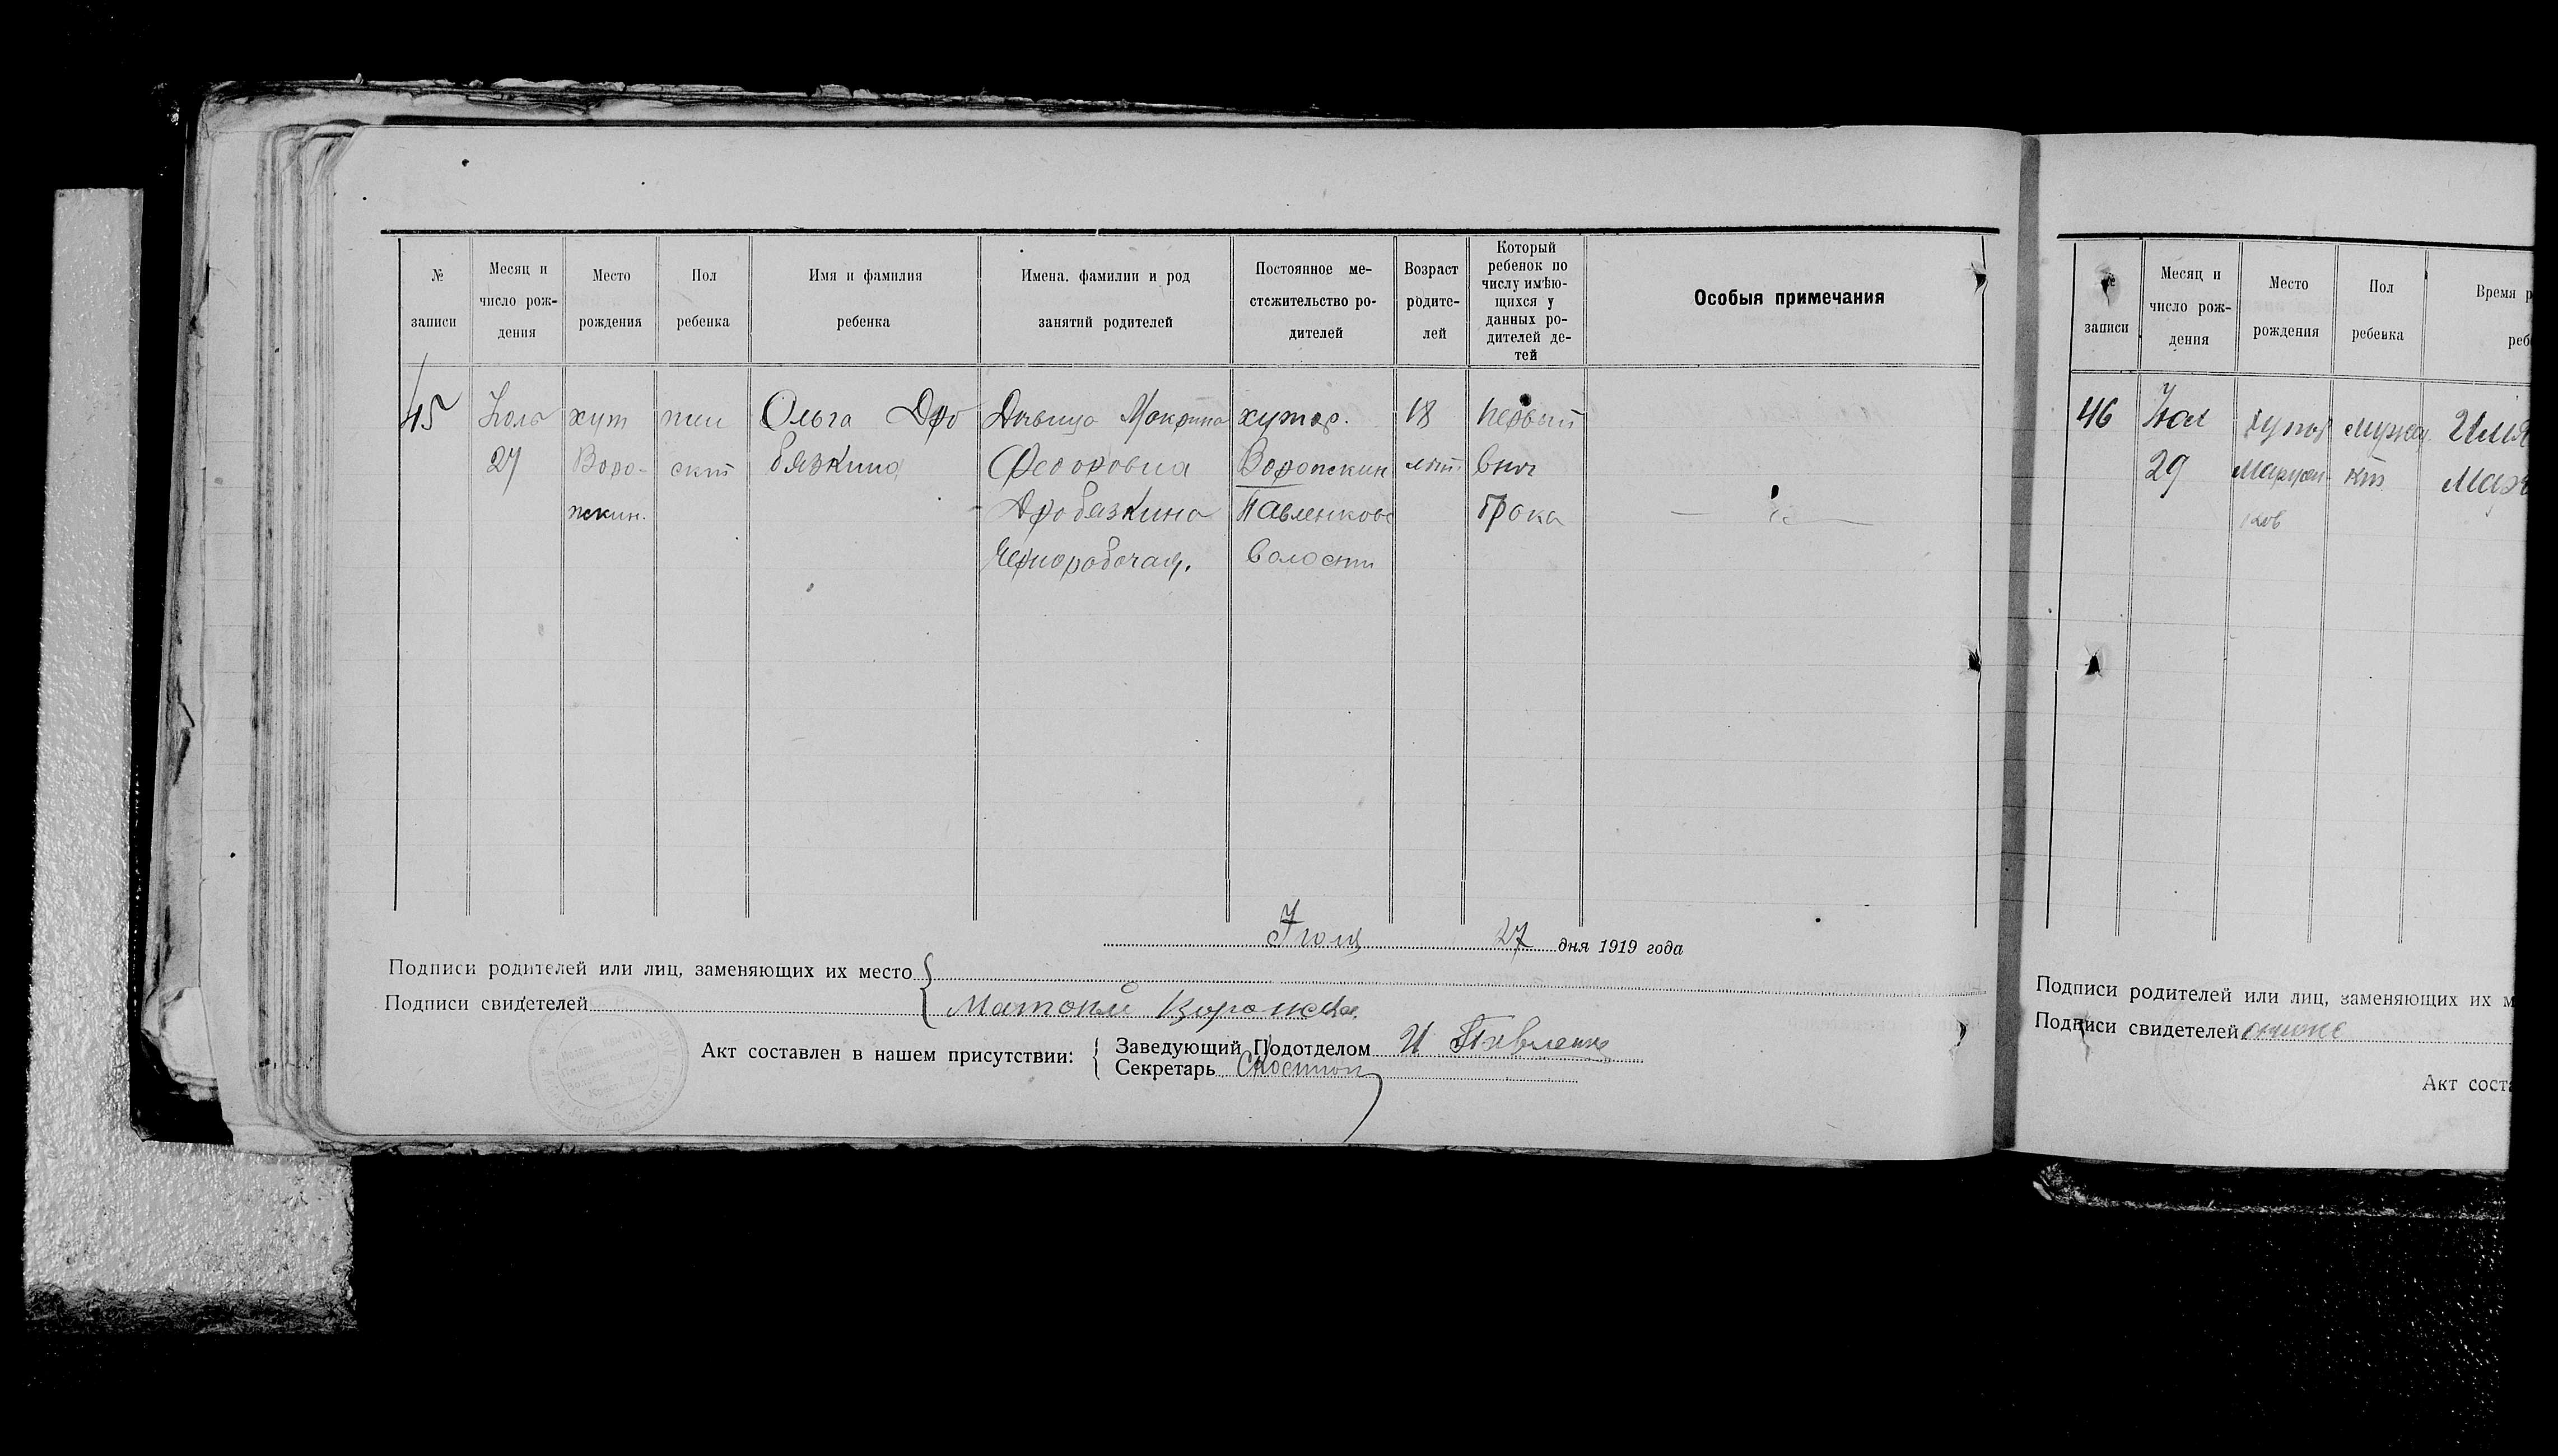 № записи
Месяц и число рождения
Место рождения
Пол ребенка
Имя и фамилия ребенка
Имена. фамилии и род занятий родителей
Постоянное местожительство родителей
Возраст родителей
Который ребенок по числу имѣющихся у данных родителей детей
Особыя примечания
45
27
хут
Воро-
пскин.
жен
скит
Ольга Дро
бязкина
Дѣвица Макрина
Федоровна
Дробязкина
Чернорабочая.
хутор.
Воропскин
Павленков
Волости
18
лѣт
первый
внѣ
брака
Июля 27 дня 1919 года
Подписи родителей или лиц, заменяющих их место
Подписи свидетелей
Акт составлен в нашем присутствии:
Заведующий Подотделом И Павленко
Секретарь
№ записи
Месяц и число рождения
Место рождения
Пол ребенка
Время р
реб
46
29
хутор
мужс
Подписи родителей или лиц, заменяющих их м
Подписи свидетелей
Акт соста